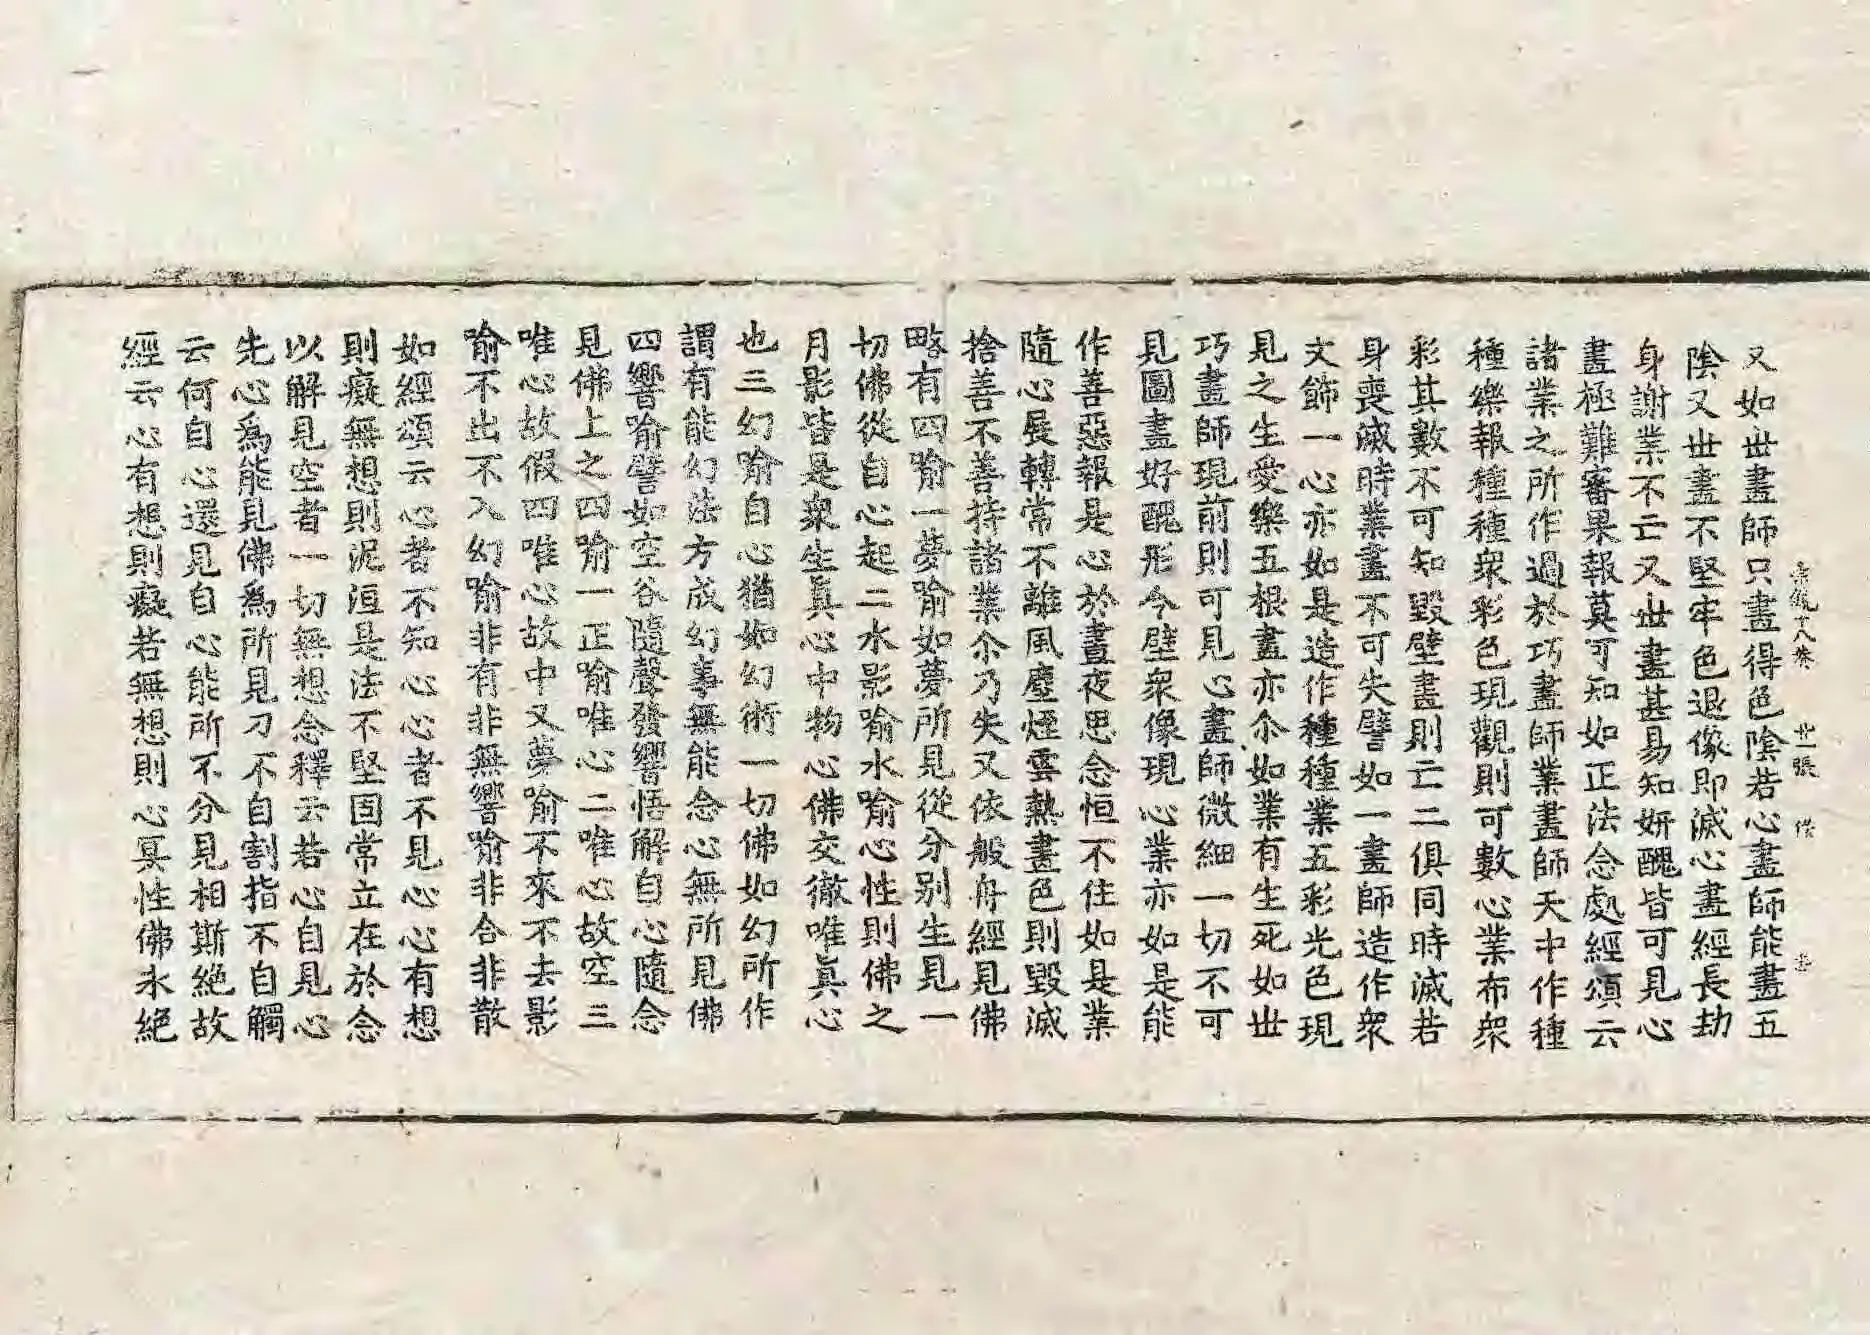 宗鏡十八卷 廿一張
又如世畫師只畫得色陰若心畫師能畫五
陰又世畫不堅牢色退像即滅心畫經長劫
身謝業不亡又世畫甚易知妍醜皆可見心
畫極難審果報莫可知如正法念處經頌云
諸業之所作過於巧畫師業畫師天中作種
種樂報種種衆彩色現觀則可數心業布衆
彩其數不可知毀壁畫則亡二俱同時滅若
身喪滅時業畫不可失譬如一畫師造作衆
文飾一心亦如是造作種種業五彩光色現
見之生愛樂五根畫亦尒如業有生死如世
巧畫師現前則可見心畫師微細一切不可
見圖畫好醜形今壁衆像現心業亦如是能
作善惡報是心於晝夜思念恒不住如是業
隨心展轉常不離風塵煙雲熱畫色則毀滅
捨善不善持諸業尒乃失又依般舟經見佛
略有四喻一夢喻如夢所見從分別生見一
切佛從自心起二水影喻水喻心性則佛之
月影皆是衆生真心中物心佛交徹唯真心
也三幻喻自心猶如幻術一切佛如幻所作
謂有能幻法方成幻事無能念心無所見佛
四響喻譬如空谷隨聲發響悟解自心隨念
見佛上之四喻一正喻唯心二唯心故空三
唯心故假四唯心故中又夢喻不來不去影
喻不出不入幻喻非有非無響喻非合非散
如經頌云心者不知心心者不見心心有想
則癡無想則泥洹是法不堅固常立在於念
以解見空者一切無想念釋云若心自見心
先心爲能見佛爲所見刀不自割指不自觸
云何自心還見自心能所不分見相斯絕故
經云心有想則癡若無想則心冥性佛永絕